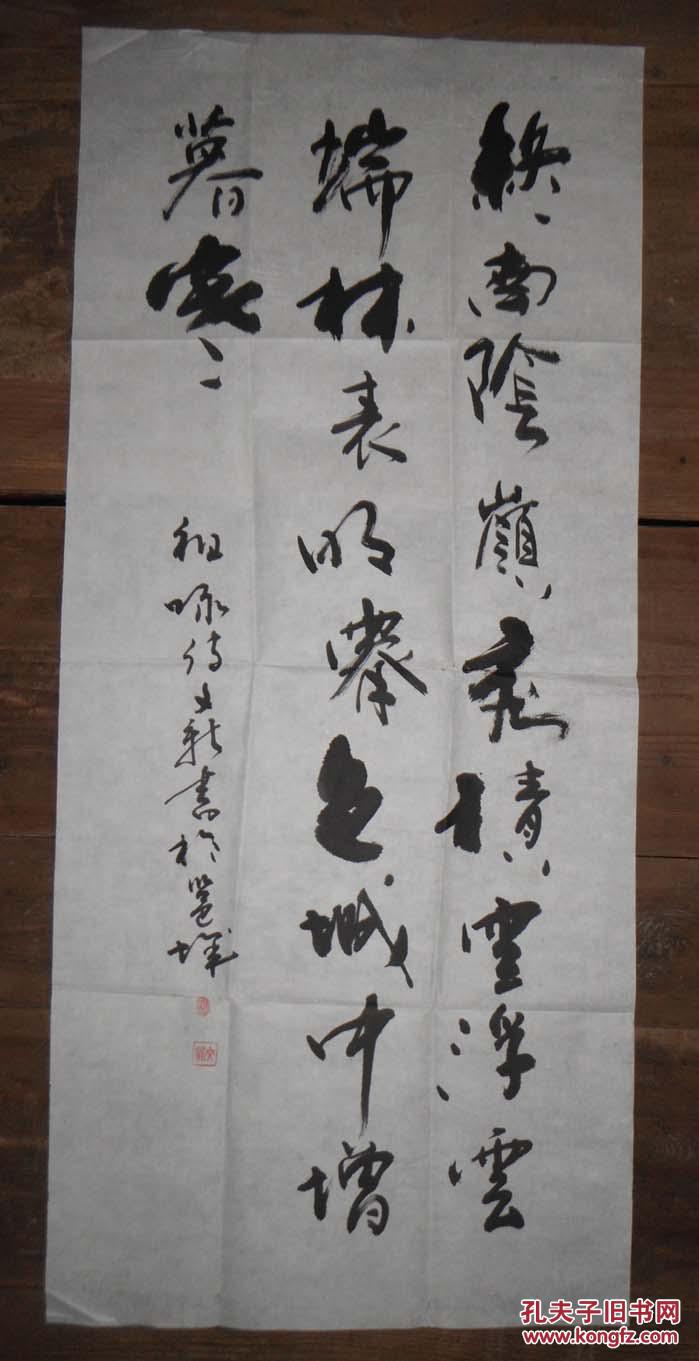 終南陰嶺秀積雪浮雲
端林表明霽色城中增
暮寒
祖咏詩文 書於邕城
孔夫子旧书网
www.kongfz.com